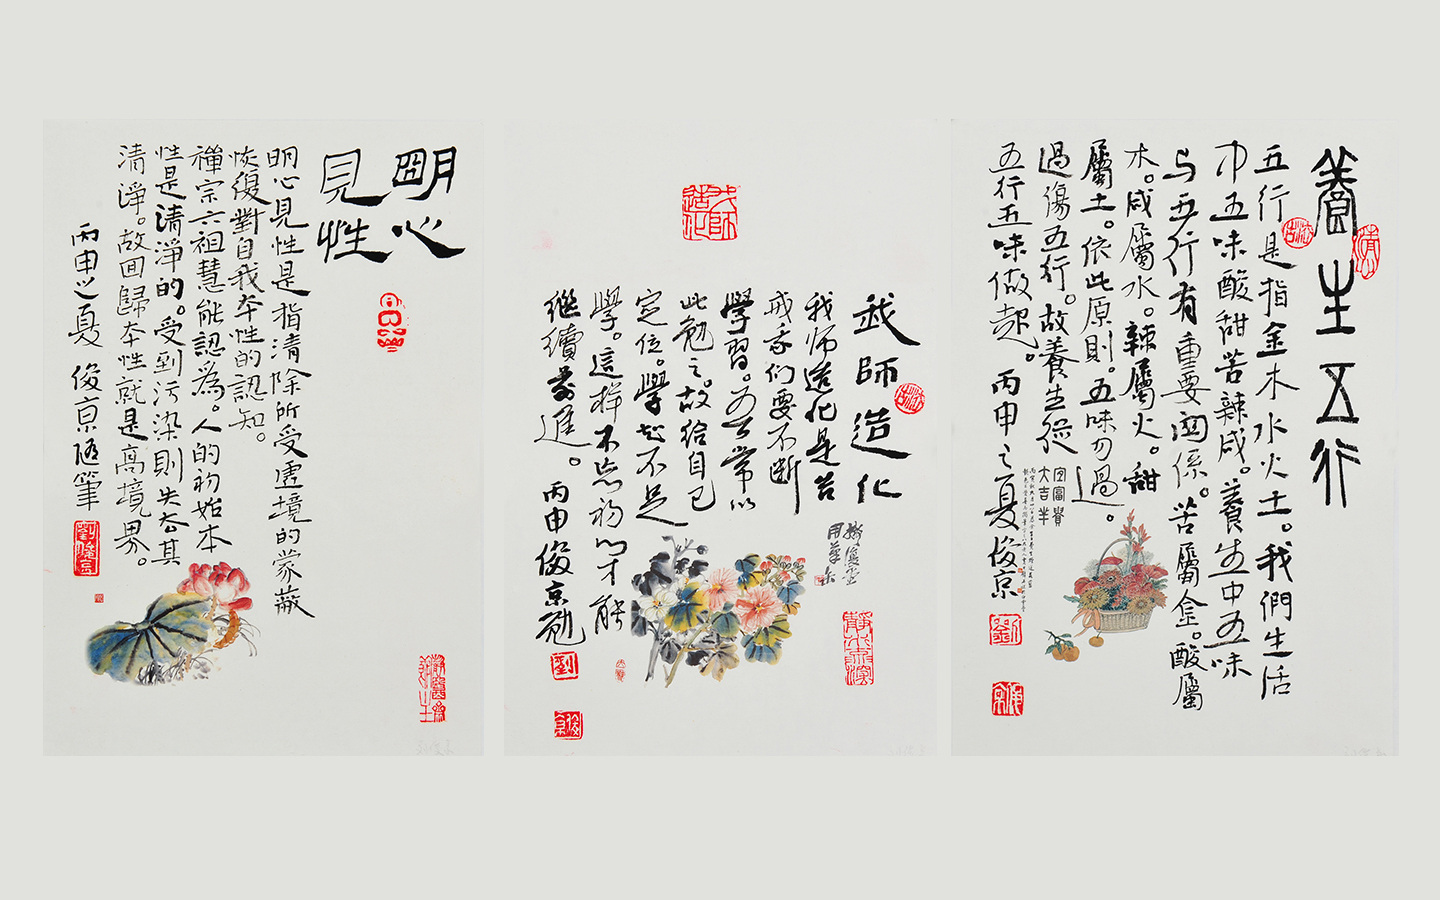 養生五行
五行是指金木水火土。我們生活
中五味酸甜苦辣咸。養生中五味
与五行有重要関係。苦屬金。酸屬
木。咸屬水。辣屬火。甜
屬土。依此原則。五味勿過。
過傷五行。故養生從
五行五味做起。丙申之夏俊京
宜富貴
大吉羊
劉
我師造化
我師造化
我师造化是告
戒我們要不断
學習。為了常以
此勉之。故给自己
定位。學起不足
學。這样不忘初心才能
继續前進。丙申俊京勉
劉
俊京
明心
見性
明心見性是指清除所受虛境的蒙蔽
恢復對自我本性的認知。
禪宗六祖慧能認為。人的初始本
性是清淨的。受到污染則失去其
清淨。故回歸本性就是高境界。
丙申之夏俊京随筆
劉俊京